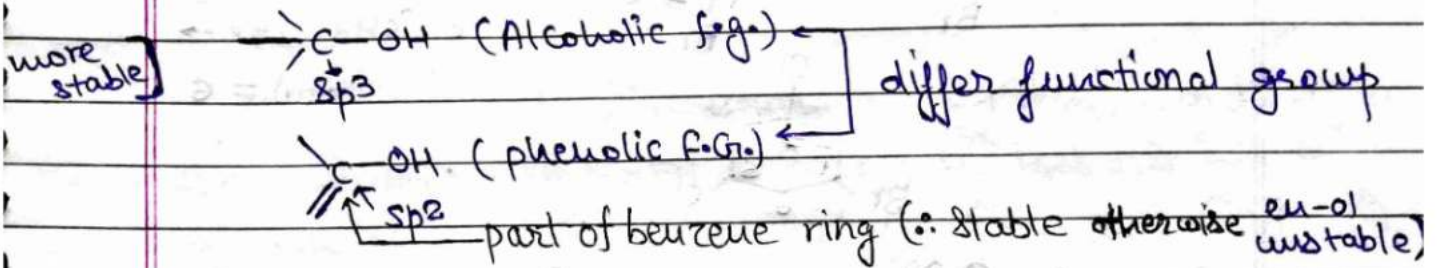 more stable] C-OH (Alcoholic f.g.)
sp3
differ functional group
C-OH. (phenolic F.Gr.)
sp2
part of benzene ring (∴ stable otherwise en-ol unstable)